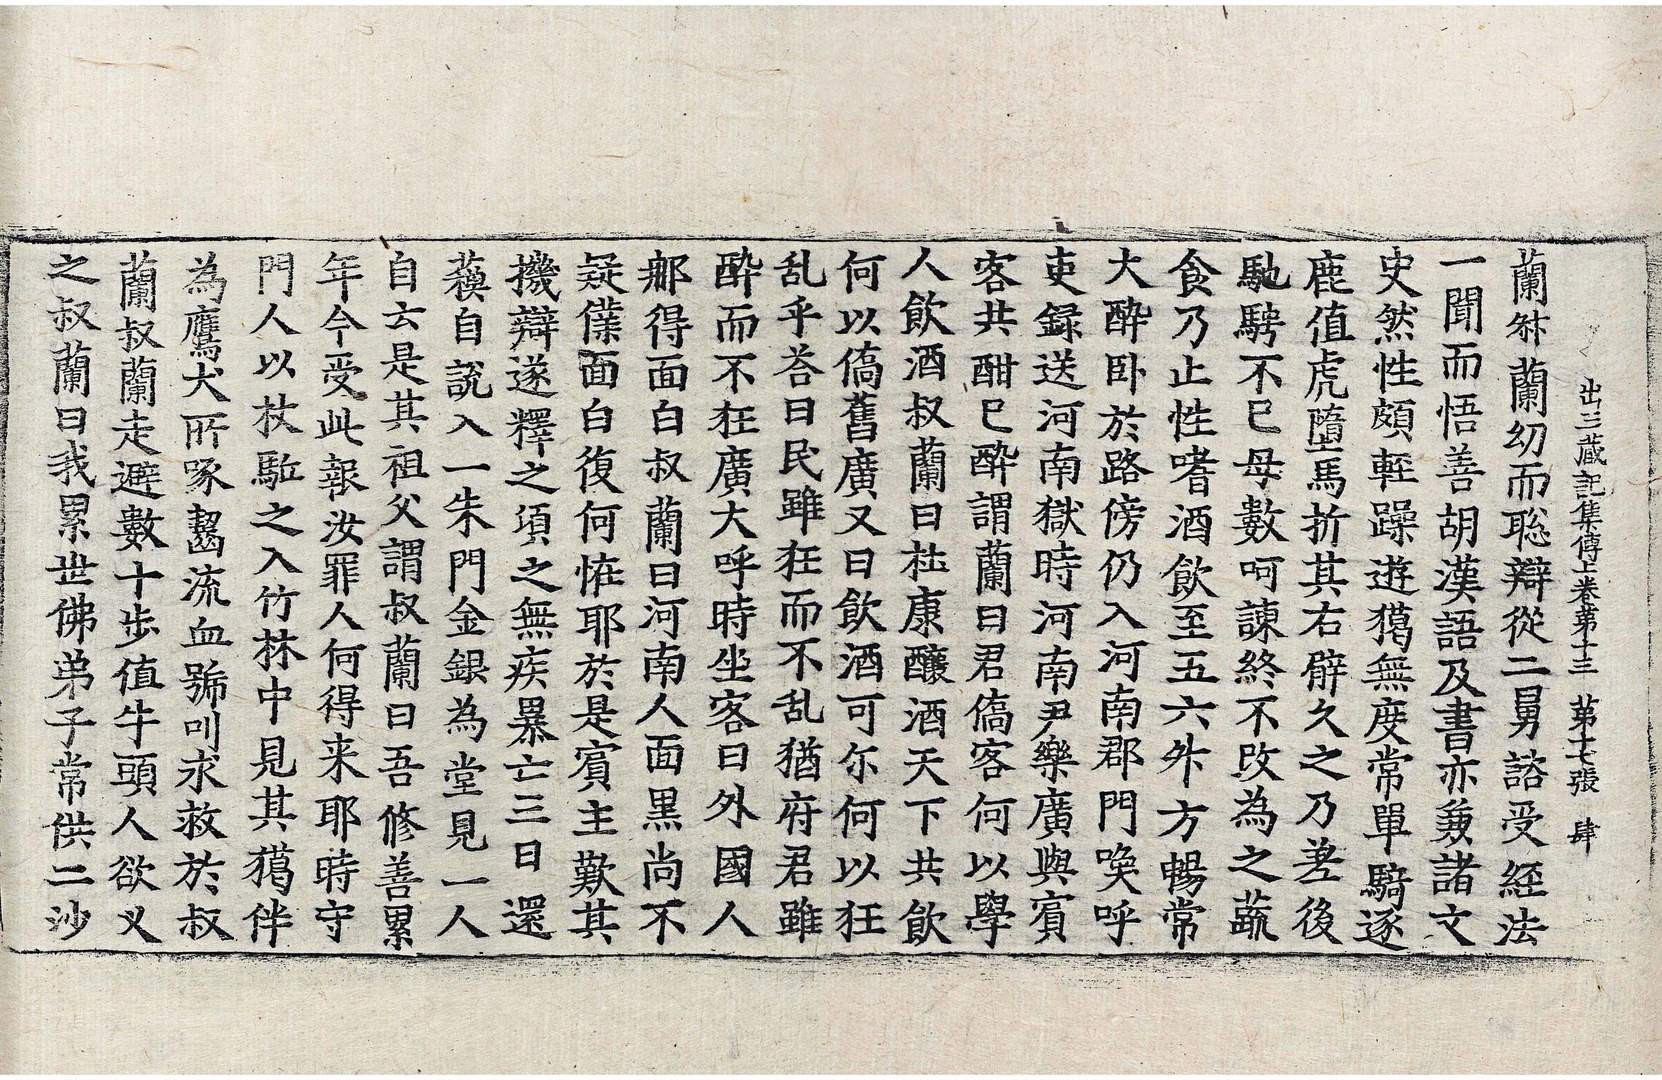 出三蔵記集傳上卷第十三 第十七張 肆
蘭叔蘭幼而聡辯從二舅諮受經法
一聞而悟善胡漢語及書亦兼諸文
史然性頗輕躁遊獦無度常單騎逐
鹿值虎墮馬折其右臂久之乃差後
馳騁不已母數呵諫終不改為之蔬
食乃止性嗜酒飲至五六升方暢常
大醉卧於路傍仍入河南郡門喚呼
吏録送河南獄時河南尹樂廣與賓
客共酣已醉謂蘭曰君僑客何以學
人飲酒叔蘭曰杜康釀酒天下共飲
何以僑舊廣又曰飲酒可尒何以狂
乱乎荅曰民雖狂而不乱猶府君雖
醉而不狂廣大呼時坐客曰外國人
那得面白叔蘭曰河南人面黒尚不
疑僕面白復何恠耶於是賓主歎其
機辯遂釋之項之無疾暴亡三日還
蘓自說入一朱門金銀為堂見一人
自云是其祖父謂叔蘭曰吾修善累
年今受此報汝罪人何得来耶時守
門人以杖駈之入竹林中見其獦伴
為鷹犬所啄齧流血號叫求救於叔
蘭叔蘭走避數十步值牛頭人欲叉
之叔蘭曰我累世佛弟子常供二沙